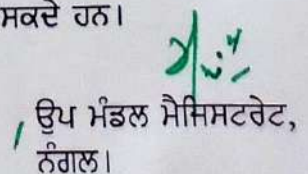 ਸਕਦੇ ਹਨ।
ਉਪ ਮੰਡਲ ਮੈਜਿਸਟਰੇਟ,
ਨੰਗਲ।